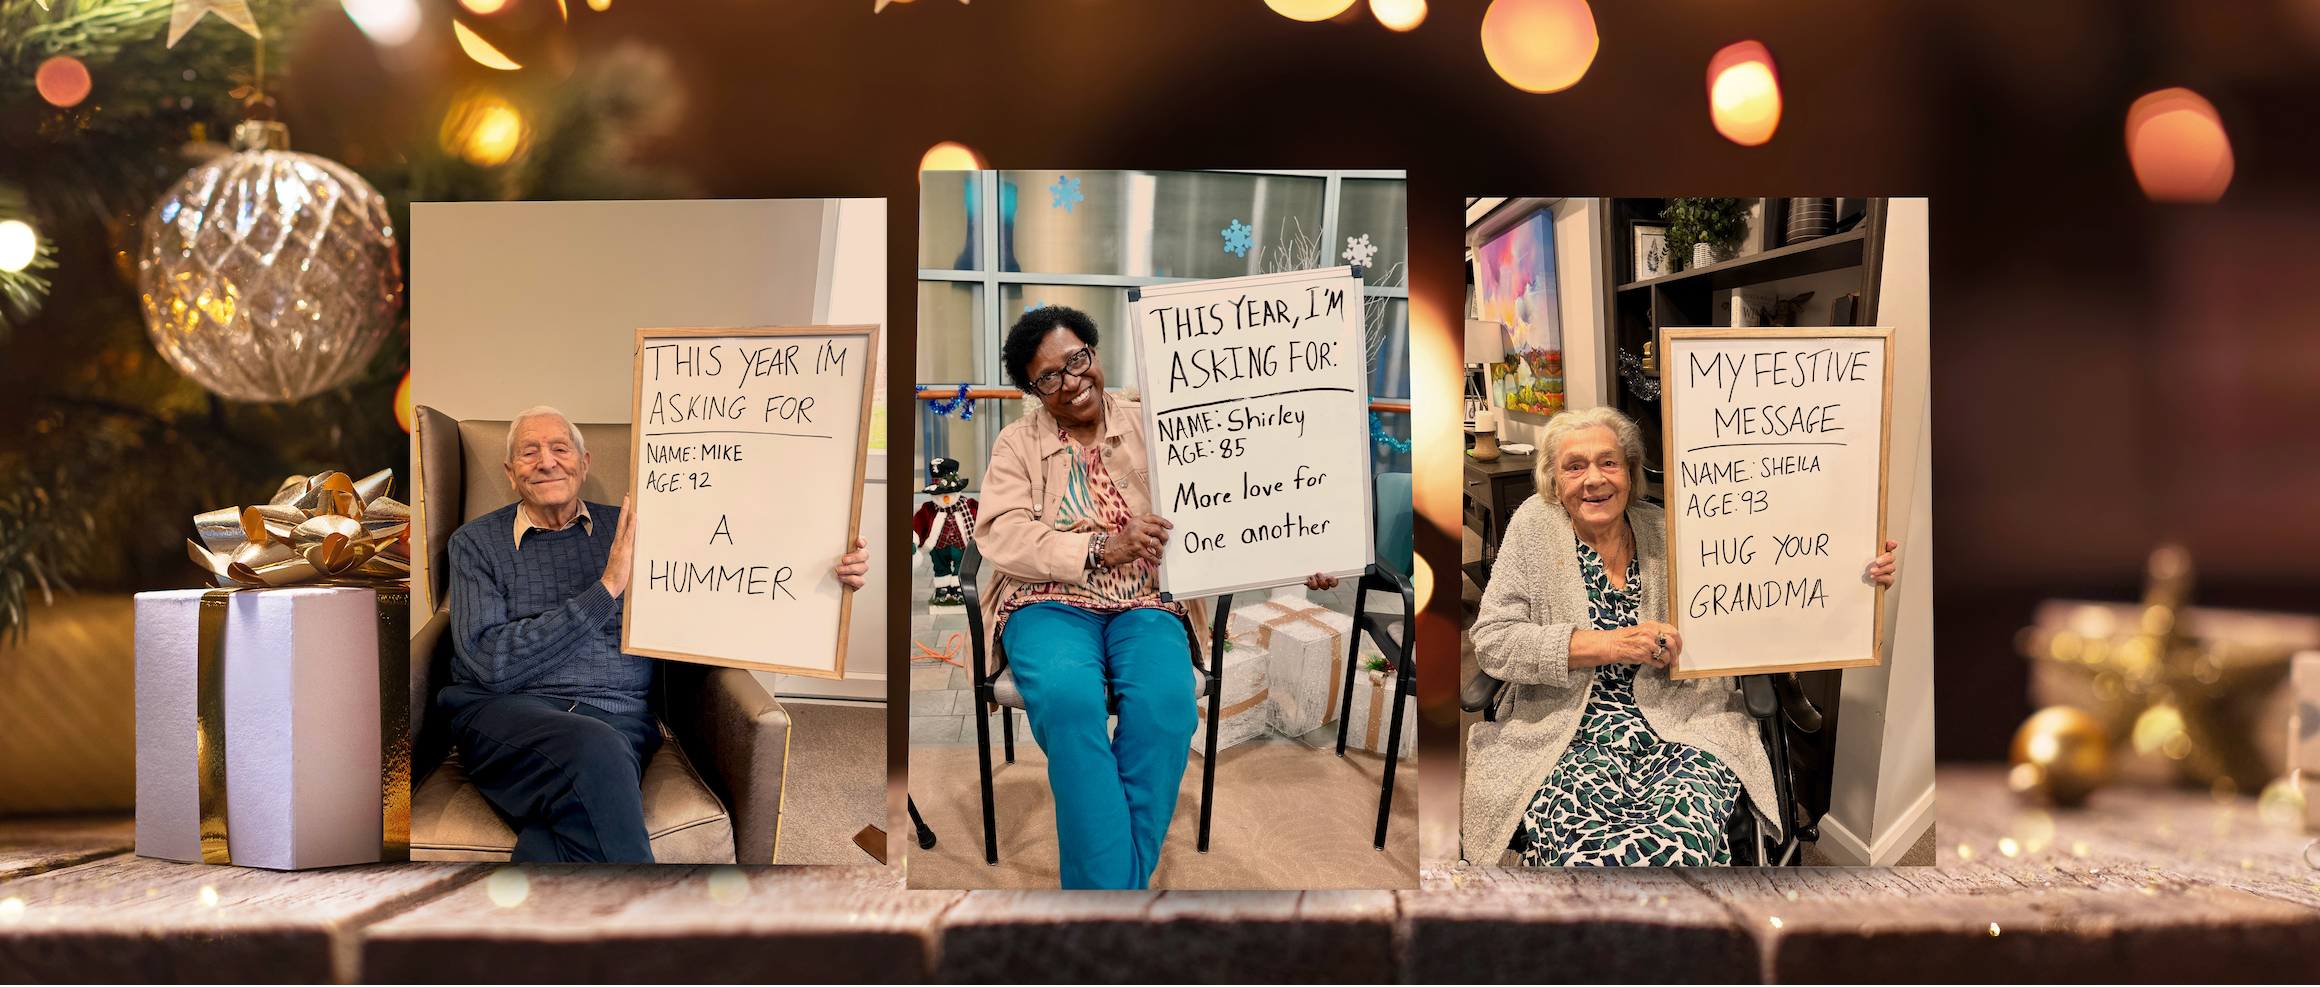 THIS YEAR I'M
ASKING FOR
NAME: MIKE
AGE: 92
A
HUMMER
THIS YEAR, I'M
ASKING FOR:
NAME: Shirley
AGE: 85
More love for
One another
MY FESTIVE
MESSAGE
NAME: SHEILA
AGE: 93
HUG YOUR
GRANDMA